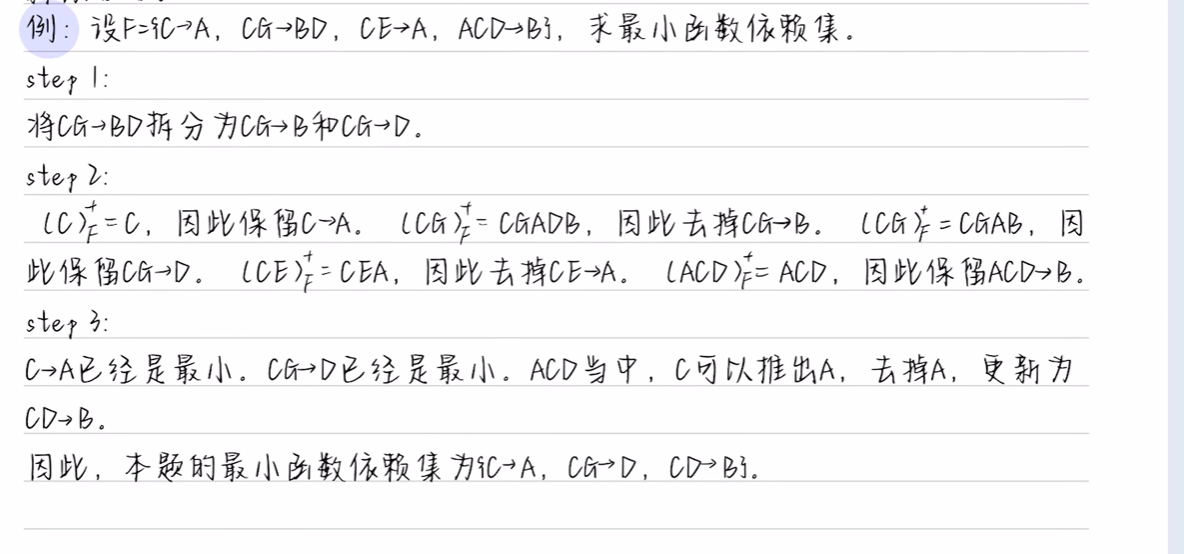 例：设F={C→A，CG→BD，CE→A，ACD→B}，求最小函数依赖集.
step 1:
将CG→BD拆分为CG→B和CG→D.
step 2:
(C)⁺F=C，因此保留C→A. (CG)⁺F=CGADB，因此去掉CG→B. (CG)⁺F=CGAB，因
此保留CG→D. (CE)⁺F=CEA，因此去掉CE→A. (ACD)⁺F=ACD，因此保留ACD→B.
step 3:
C→A已经是最小. CG→D已经是最小. ACD当中，C可以推出A，去掉A，更新为
CD→B.
因此，本题的最小函数依赖集为{C→A，CG→D，CD→B}.